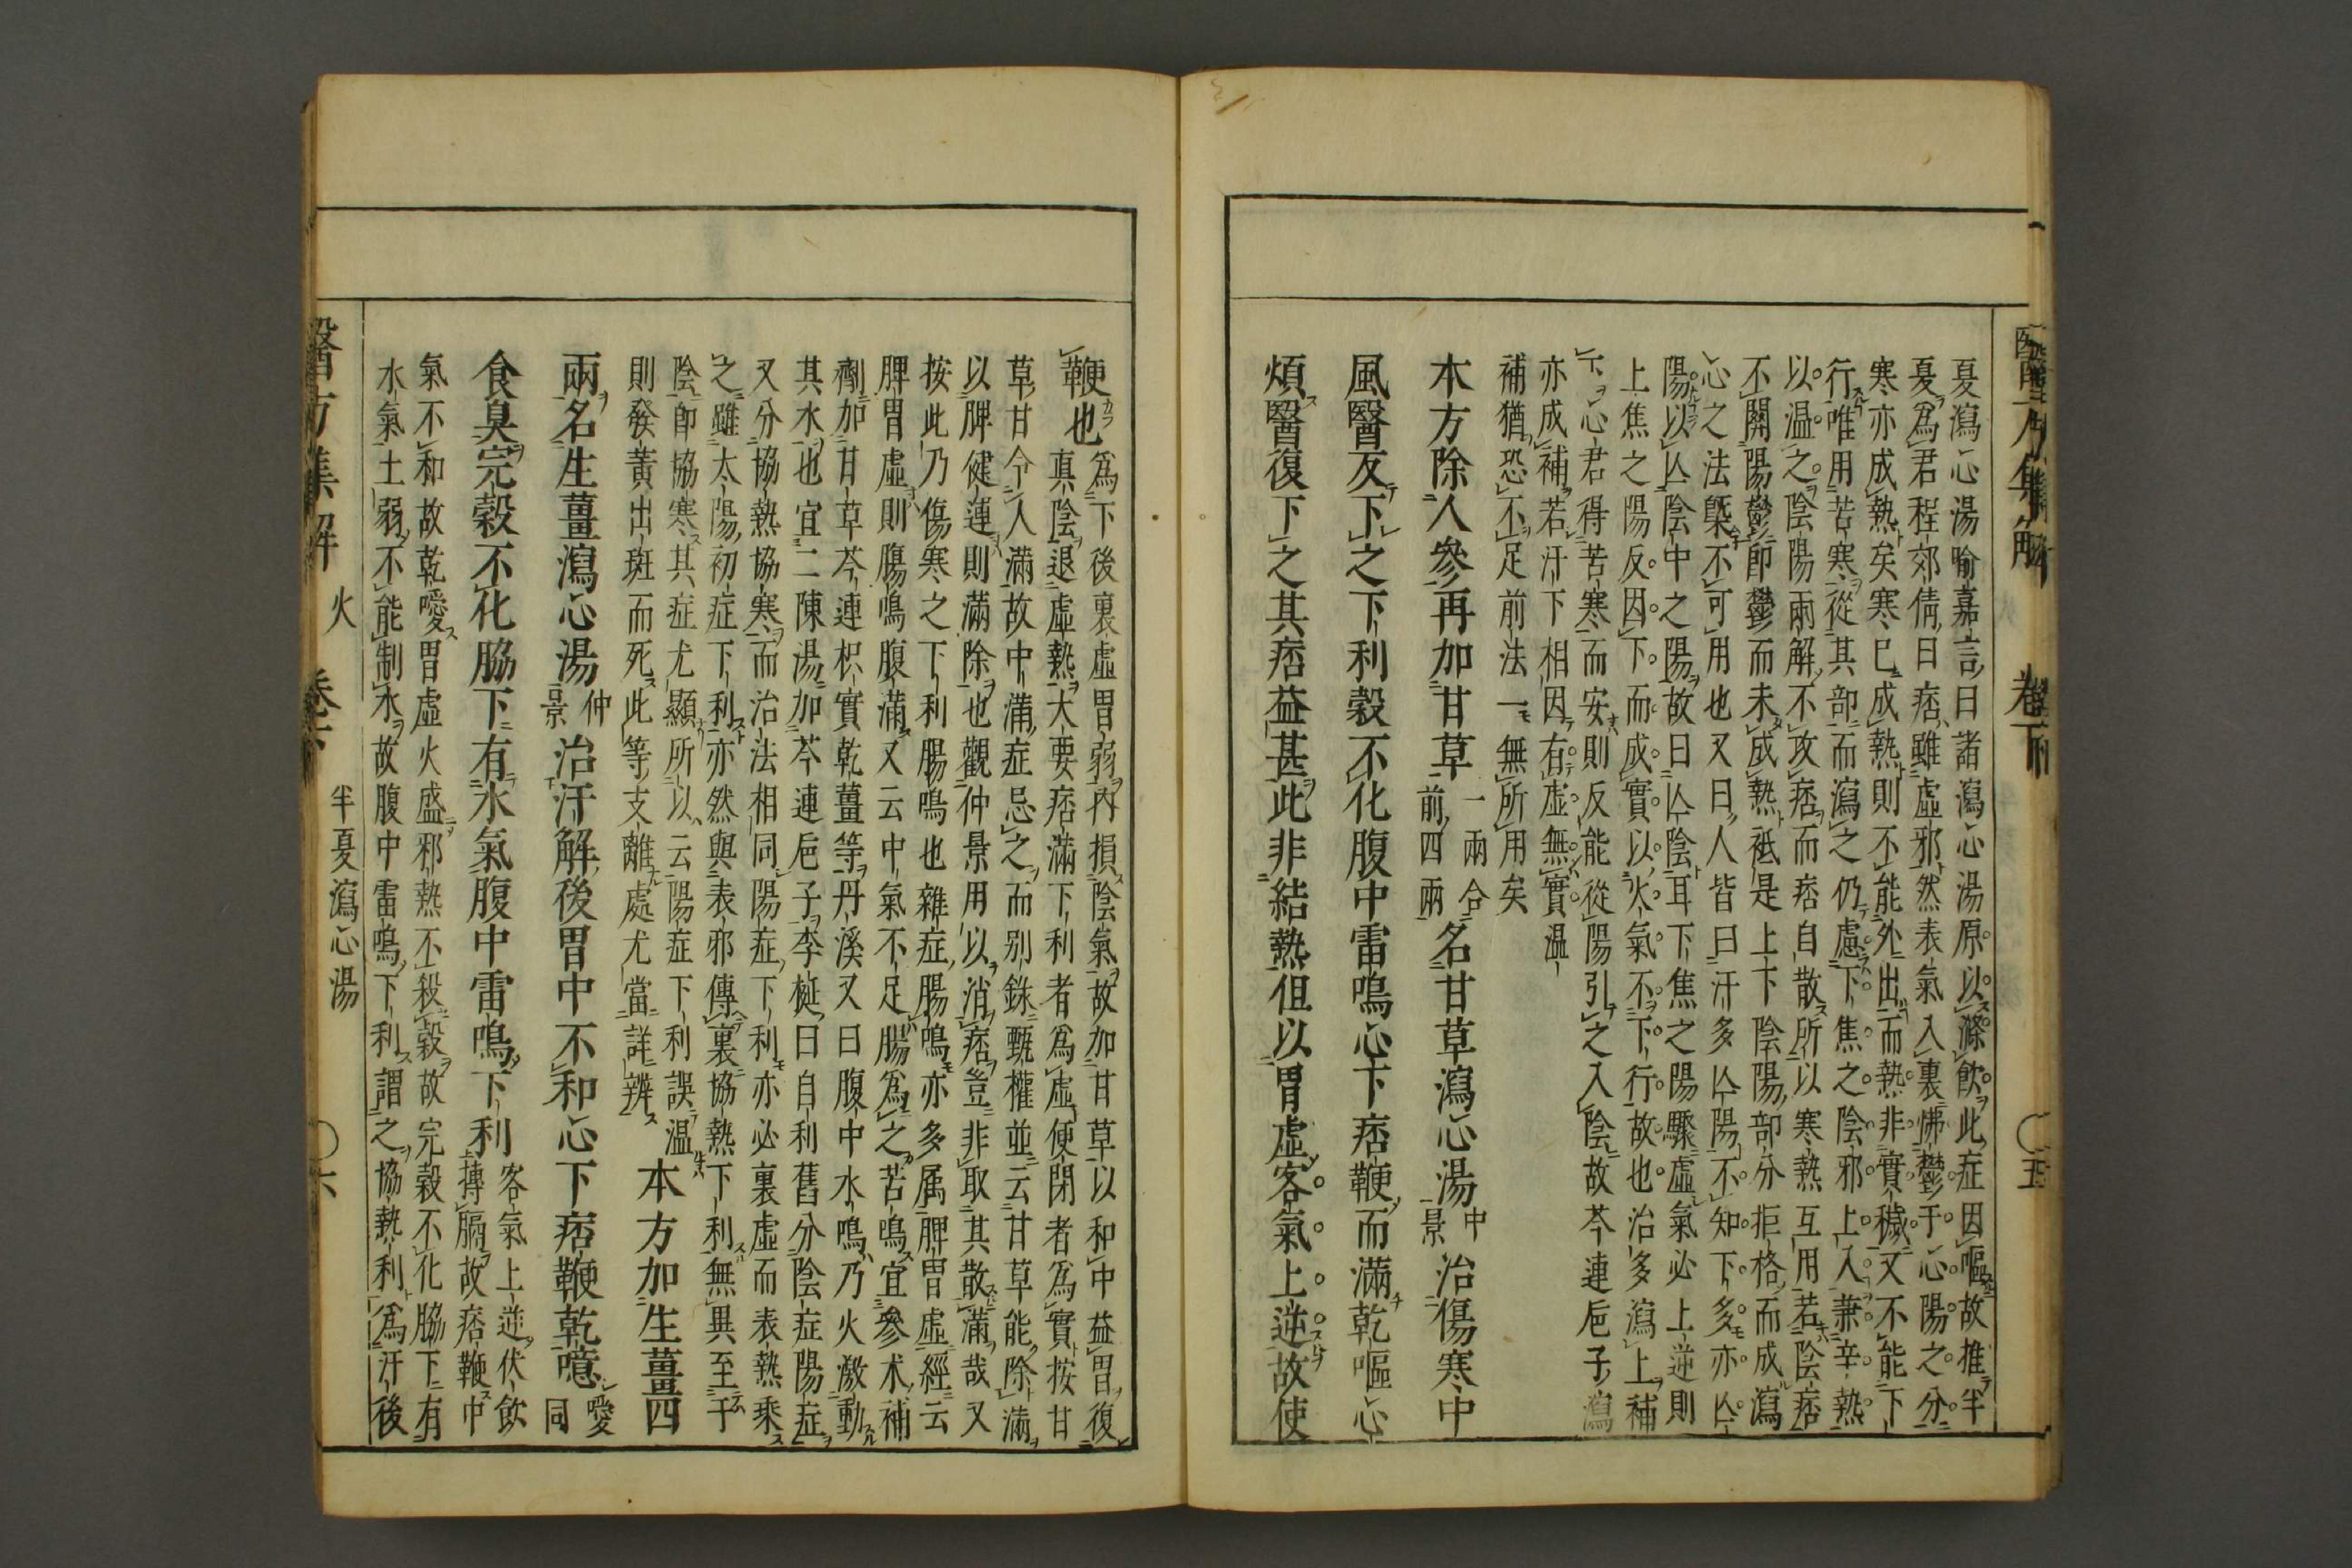 醫方集解 卷下 ○五
夏瀉心湯喻嘉言曰諸瀉心湯原以滌飲此症因嘔故推半
夏爲君程郊倩曰痞雖虛邪然表氣入裏怫鬱于心陽之分
寒亦成熱矣寒已成熱則不能外出而熱非實穢又不能下
行唯用苦寒從其部而瀉之仍慮下焦之陰邪上入兼辛熱
以温之陰陽兩解不攻痞而痞自散所以寒熱互用若陰痞
不關陽鬱即鬱而未成熱祗是上下陰陽部分拒格而成瀉
心之法槩不可用也又曰人皆曰汗多亾陽不知下多亦亾
陽以亾陰中之陽故曰亾陰耳下焦之陽驟虛氣必上逆則
上焦之陽反因下而成實以火氣不下行故也治多瀉上補
下心君得苦寒而安則反能從陽引之入陰故芩連巵子瀉
亦成補若汗下相因有虛無實温
補猶恐不足前法一無所用矣
本方除人參再加甘草一兩合前四兩名甘草瀉心湯中景治傷寒中
風醫反下之下利穀不化腹中雷鳴心下痞鞕而滿乾嘔心
煩醫復下之其痞益甚此非結熱但以胃虛客氣上逆故使
鞕也爲下後裏虛胃弱内損陰氣故加甘草以和中益胃復
真陰退虛熱大要痞滿下利者爲虛便閉者爲實按甘
草甘令人滿故中滿症忌之而别錄甄權並云甘草能除滿
以脾健運則滿除也觀仲景用以消痞豈非取其散滿哉又
按此乃傷寒之下利腸鳴也雜症腸鳴亦多属脾胃虛經云
脾胃虛則腸鳴腹滿又云中氣不足腸爲之苦鳴宜參术補
劑加甘草芩連枳實乾薑等丹溪又曰腹中水鳴乃火激動
其水也宜二陳湯加芩連巵子李梴曰自利舊分陰症陽症
又分協熱協寒而治法相同陽症下利亦必裏虛而表熱乘
之雖太陽初症下利亦然與表邪傳裏協熱下利無異至于
陰即協寒其症尤顯所以云陽症下利誤温
則發黄出斑而死此等支離處尤當詳辨本方加生薑四
兩名生薑瀉心湯仲景治汗解後胃中不和心下痞鞕乾噫噯同
食臭完穀不化脇下有水氣腹中雷鳴下利客氣上逆伏飲
搏膈故痞鞕中
氣不和故乾噯胃虛火盛邪熱不殺穀故完穀不化脇下有
水氣土弱不能制水故腹中雷鳴下利謂之協熱利爲汗後
醫方集解 火 卷下 半夏瀉心湯 ○六